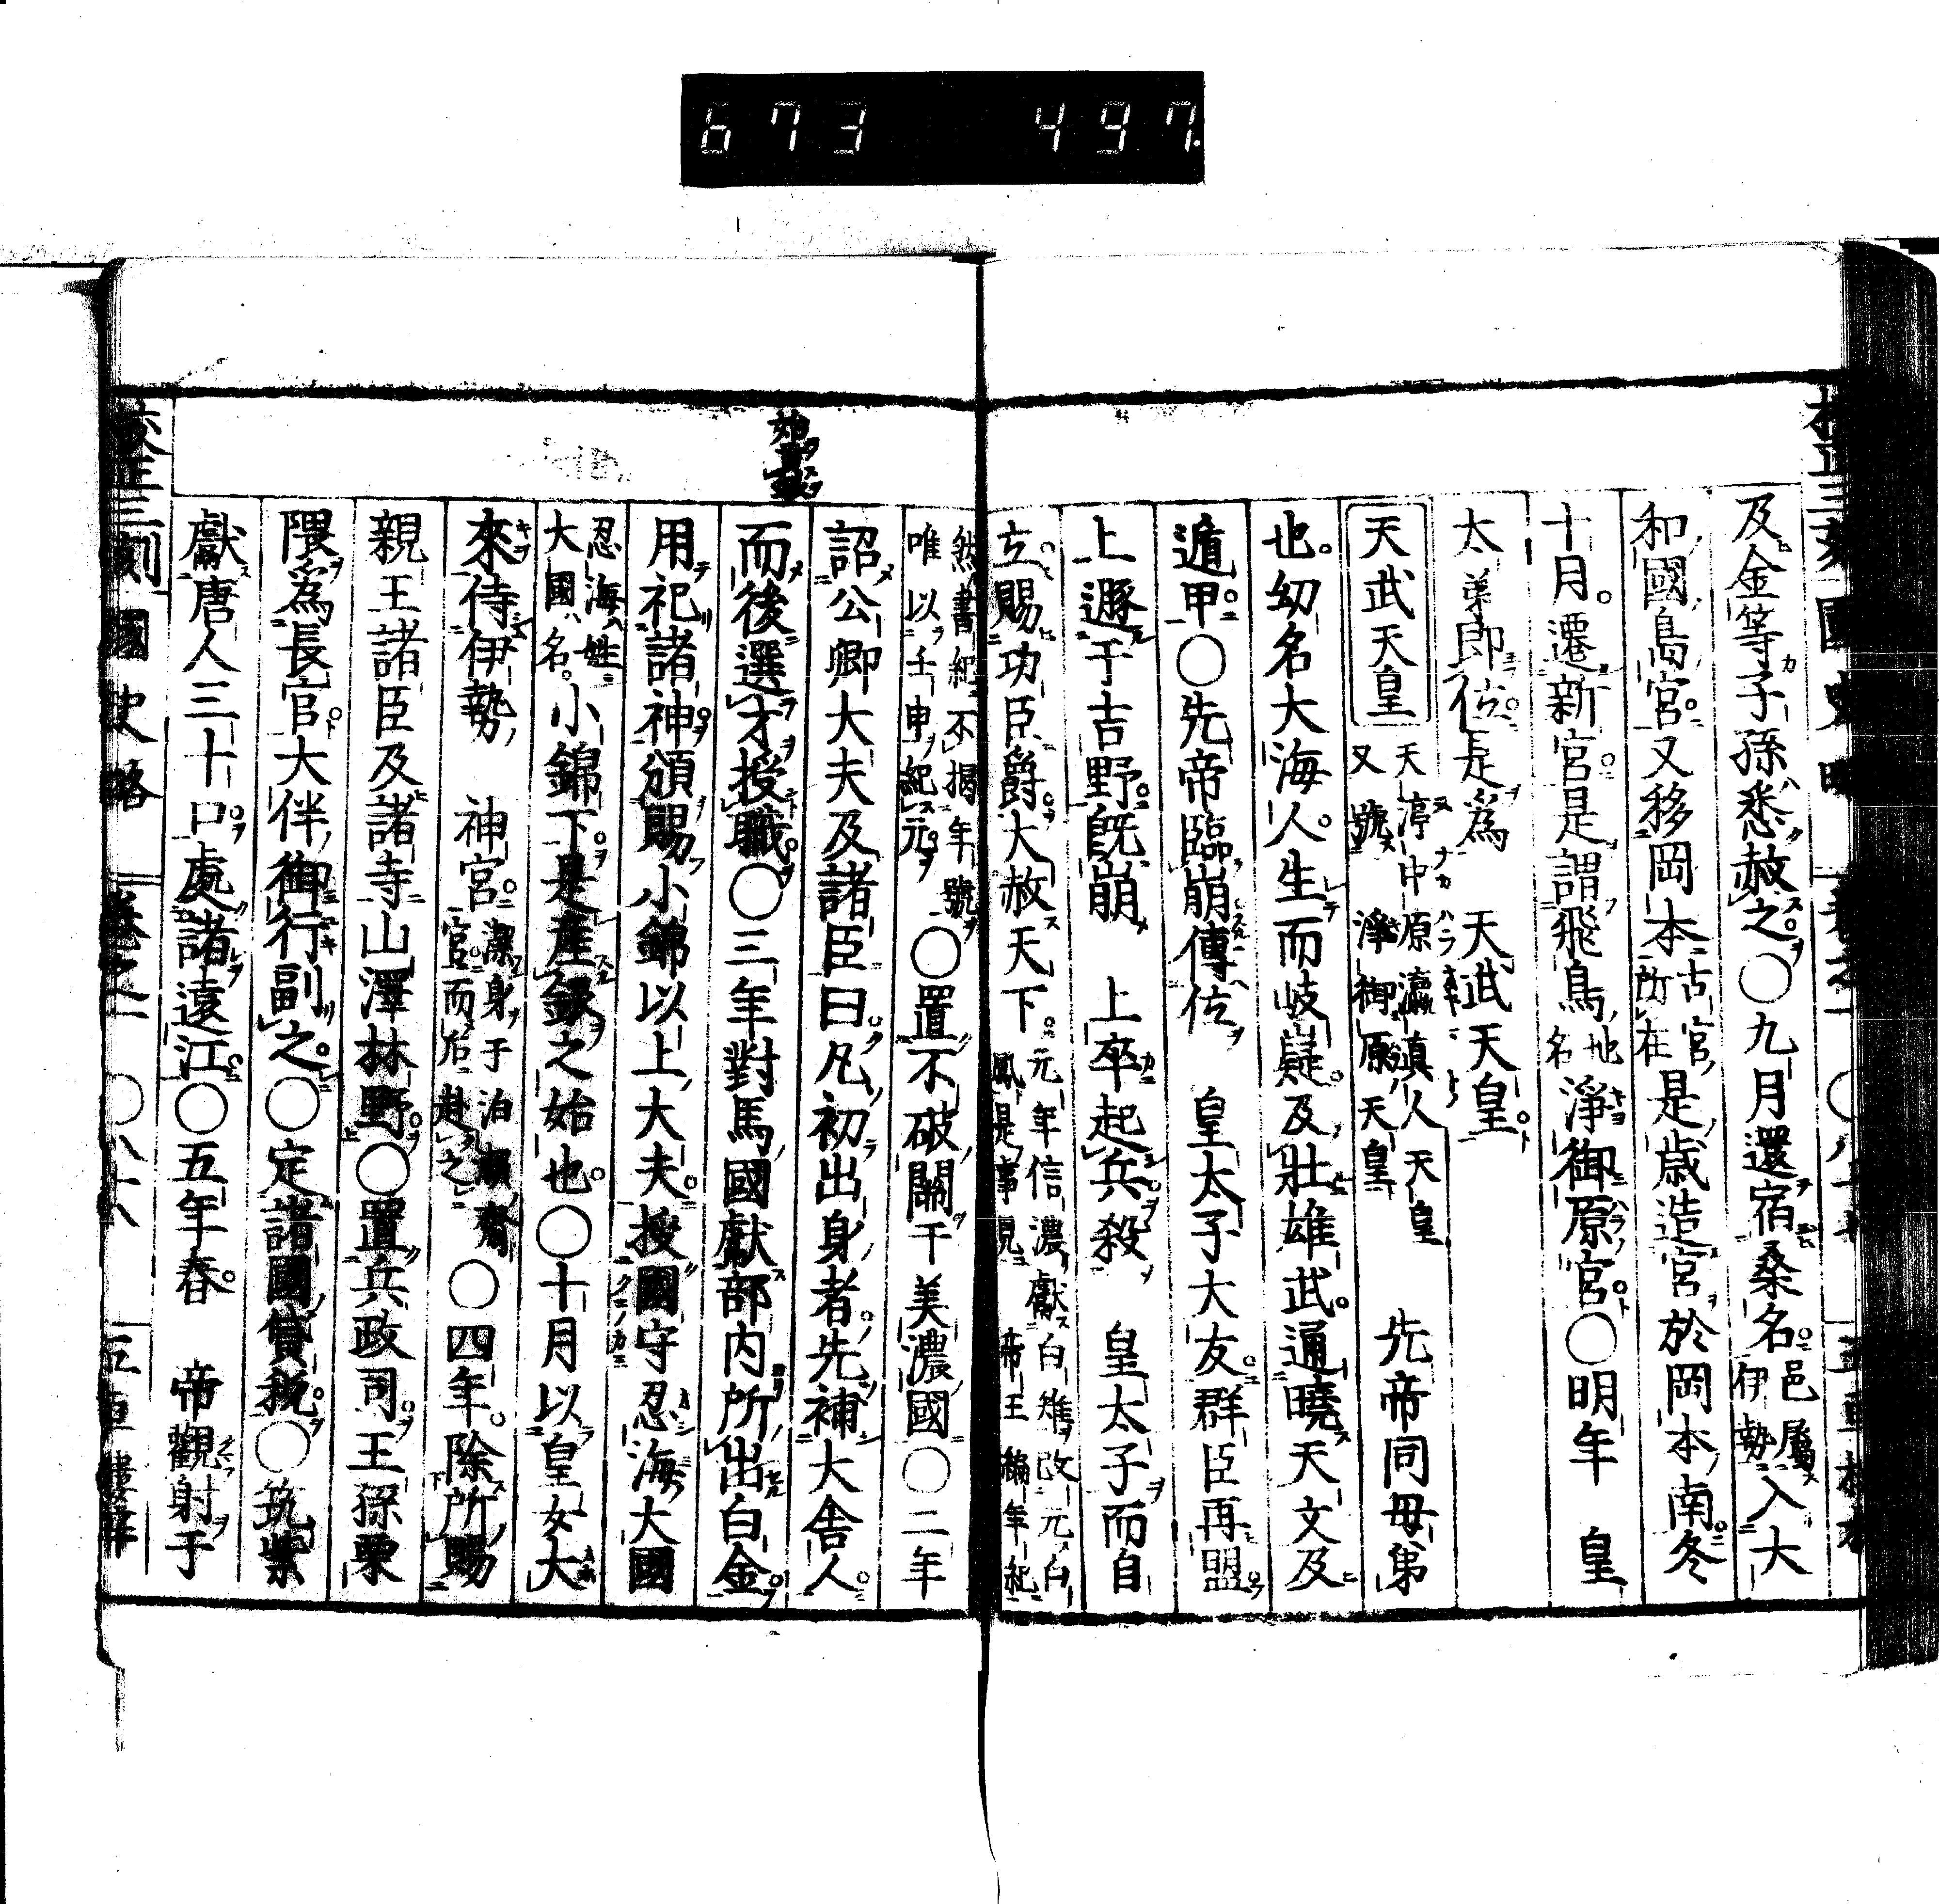 673 497
及金等子孫悉赦之○九月還宿桑名邑屬伊勢入大
和國島宮又移岡本古宮所在是歳造宮於岡本南冬
十月遷新宮是謂飛鳥地名淨御原宮○明年 皇
太弟即位是爲 天武天皇
天武天皇 天渟中原瀛真人天皇又號淨御原天皇 先帝同母弟
也幼名大海人生而岐嶷及壯雄武通曉天文及
遁甲○先帝臨崩傳位 皇太子大友群臣再盟
上遯于吉野既崩 上卒起兵殺 皇太子而自
立賜功臣爵大赦天下元年信濃獻白雉改元白鳳是事見帝王編年記
然書紀不揭年號唯以壬申紀元○置不破關于美濃國○二年
詔公卿大夫及諸臣曰凡初出身者先補大舍人
而後選才授職○三年對馬國獻部内所出白金
用祀諸神頒賜小錦以上大夫授國守忍海大國
忍海姓大國名小錦下是產銀之始也○十月以皇女大
來侍伊勢 神宮潔身于泊瀬齋宮而后赴之○四年除所賜
親王諸臣及諸寺山澤林野○置兵政司王孫栗
隈爲長官大伴御行副之○定諸國貸稅○筑紫
獻唐人三十口處諸遠江○五年春 帝觀射于
校正三刻國史略 卷之一 ○八十八 五車樓梓